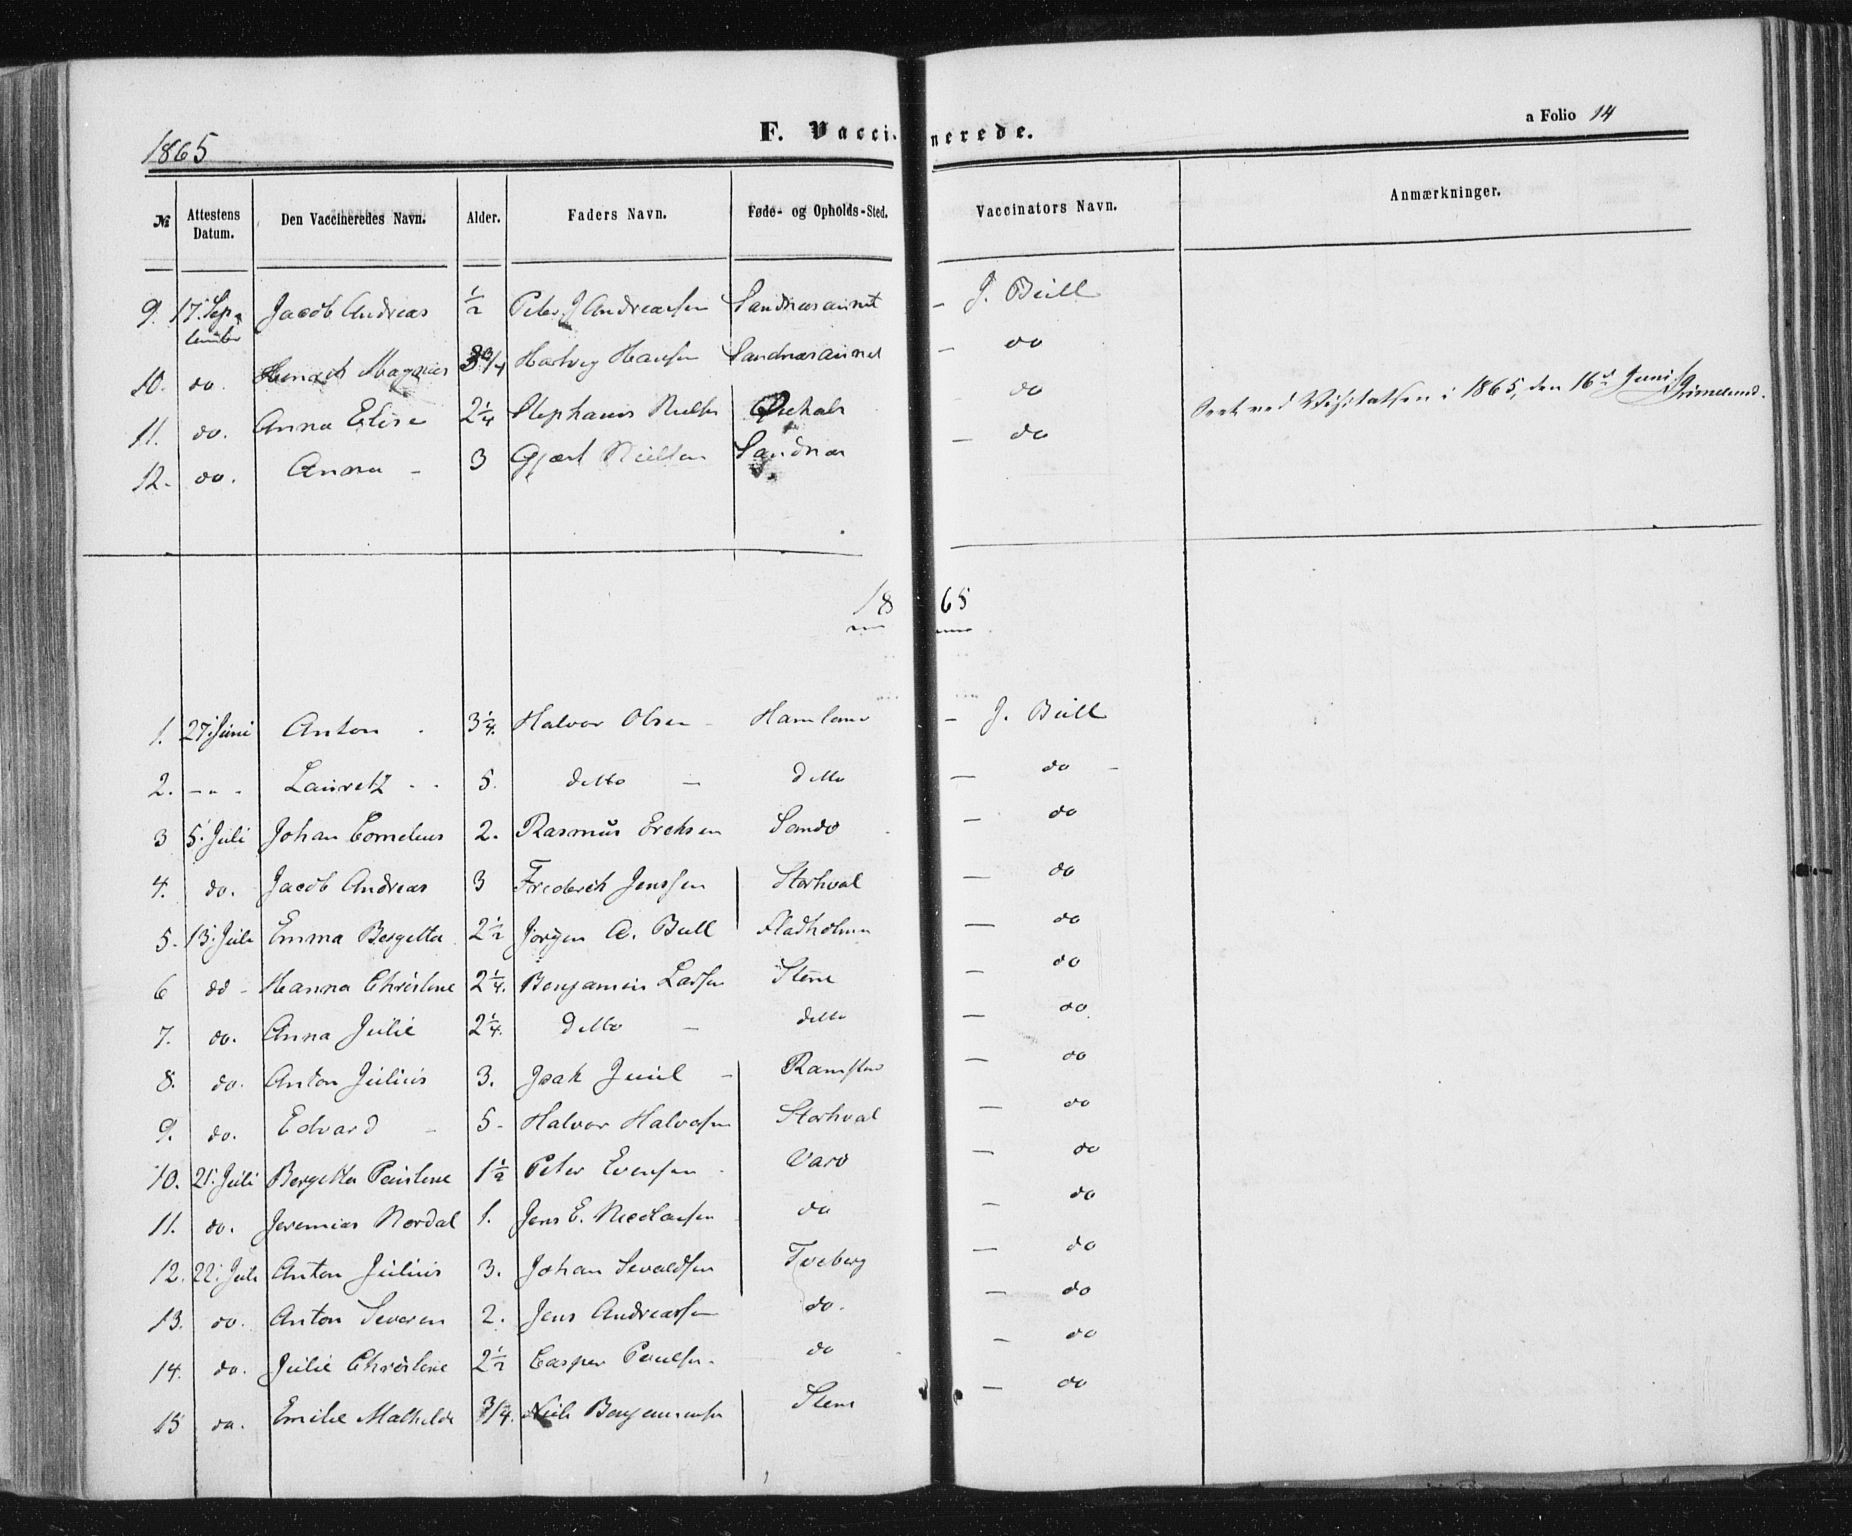 1865
F. Vaccinerede.
a Folio 14
№ Attestens Datum. Den Vaccineredes Navn. Alder. Faders Navn. Føde- og Opholds-Sted. Vaccinators Navn. Anmærkninger.
9. 17. Sep-tember Jacob Andreas ½ Peter J Andreassen Sandnæsaunet – J. Büll
10. do. Magnus Hartvig Hansen Sandnæsaunet – do
11. do. Anna Elise 2¼ Stephanus – do
Seet ved Visitatsen i 1865, den 16de Juni Grimelund.
12. do. Anna - 3 Gjært Nielsen Sandnæs – do
1865
1. 27. Juni Anton 3¼. Halvor Olsen - – J. Büll
2. - " - Lauretz - - 5. detto – detto – do –
3 5. Juli Johan Cornelius 2. Rasmus Ereksen – do
4. do. Jacob Andreas 3 Frederik Jenssen Storhval – do
5. 13. Juli Emma Bergetta 2½ Jörgen A. Bull Fladholmen – do
6 do - Hanna Christine 2¼. Benjamin Larsen Stene – do
7. do. Anna Julie 2¼. detto – detto – do
8. do. Anton Julius 3. Isak Juul – – do
9. do. Edvard – 5. Halvor Halvorsen Storhval – do
10. 21. Juli Bergetta Pauline 1½ Peter Evensen – do
11. do. Jeremias Nordal 1. Jens E. Nicolaisen do – do
12. 22. Juli Anton Julius 3. Johan Sevaldsen Tveberg – do
13. do. Anton Severin 2. Jens Andreassen do. – do
14. do. Julie Christine 2½ Casper Paulsen. do – do
15 do. Emilie Mathilde ¾. Niels Benjaminsen Stene – do